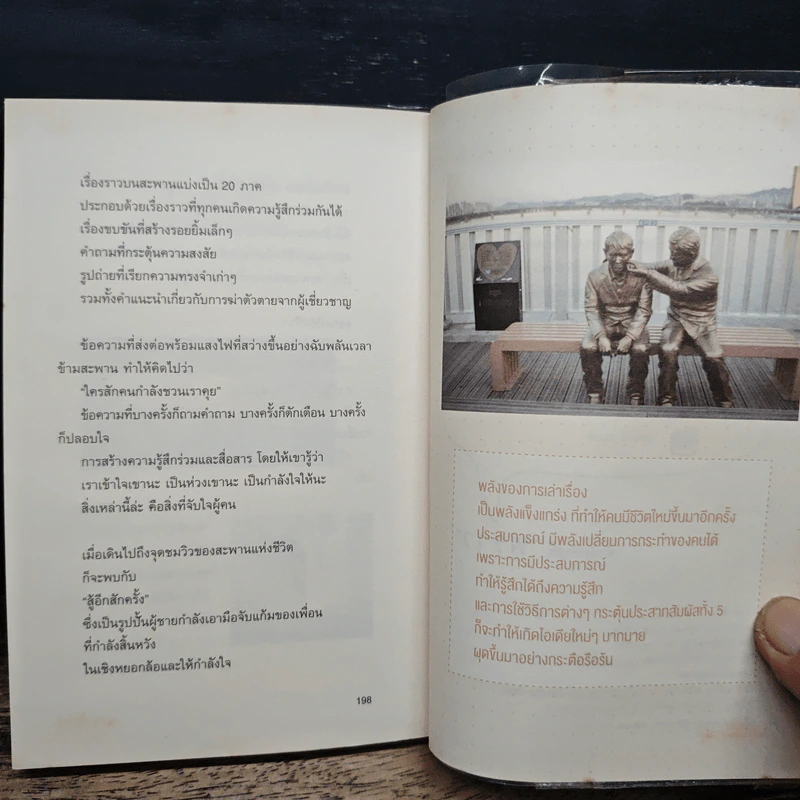 เรื่องราวบนสะพานแบ่งเป็น 20 ภาค
ประกอบด้วยเรื่องราวที่ทุกคนเกิดความรู้สึกร่วมกันได้
เรื่องขบขันที่สร้างรอยยิ้มเล็กๆ
คำถามที่กระตุ้นความสงสัย
รูปถ่ายที่เรียกความทรงจำเก่าๆ
รวมทั้งคำแนะนำเกี่ยวกับการฆ่าตัวตายจากผู้เชี่ยวชาญ
ข้อความที่ส่งต่อพร้อมแสงไฟที่สว่างขึ้นอย่างฉับพลันเวลา
ข้ามสะพาน ทำให้คิดไปว่า
"ใครสักคนกำลังชวนเราคุย"
ข้อความที่บางครั้งก็ถามคำถาม บางครั้งก็ตักเตือน บางครั้ง
ก็ปลอบใจ
การสร้างความรู้สึกร่วมและสื่อสาร โดยให้เขารู้ว่า
เราเข้าใจเขานะ เป็นห่วงเขานะ เป็นกำลังใจให้นะ
สิ่งเหล่านี้ล่ะ คือสิ่งที่จับใจผู้คน
เมื่อเดินไปถึงจุดชมวิวของสะพานแห่งชีวิต
ก็จะพบกับ
"สู้อีกสักครั้ง"
ซึ่งเป็นรูปปั้นผู้ชายกำลังเอามือจับแก้มของเพื่อน
ที่กำลังสิ้นหวัง
ในเชิงหยอกล้อและให้กำลังใจ
198
พลังของการเล่าเรื่อง
เป็นพลังแข็งแกร่ง ที่ทำให้คนมีชีวิตใหม่ขึ้นมาอีกครั้ง
ประสบการณ์ มีพลังเปลี่ยนการกระทำของคนได้
เพราะการมีประสบการณ์
ทำให้รู้สึกได้ถึงความรู้สึก
และการใช้วิธีการต่างๆ กระตุ้นประสาทสัมผัสทั้ง 5
ก็จะทำให้เกิดไอเดียใหม่ๆ มากมาย
ผุดขึ้นมาอย่างกระตือรือร้น